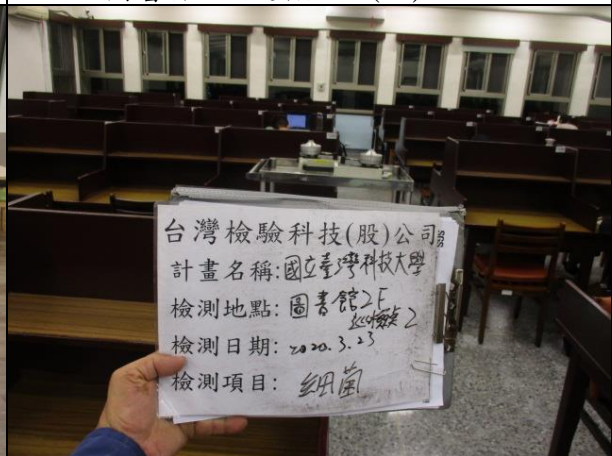 台灣檢驗科技(股)公司
計畫名稱:國立臺灣科技大學
檢測地點:圖書館2F
巡檢點2
檢測日期:2020.3.23
檢測項目:細菌
SGS